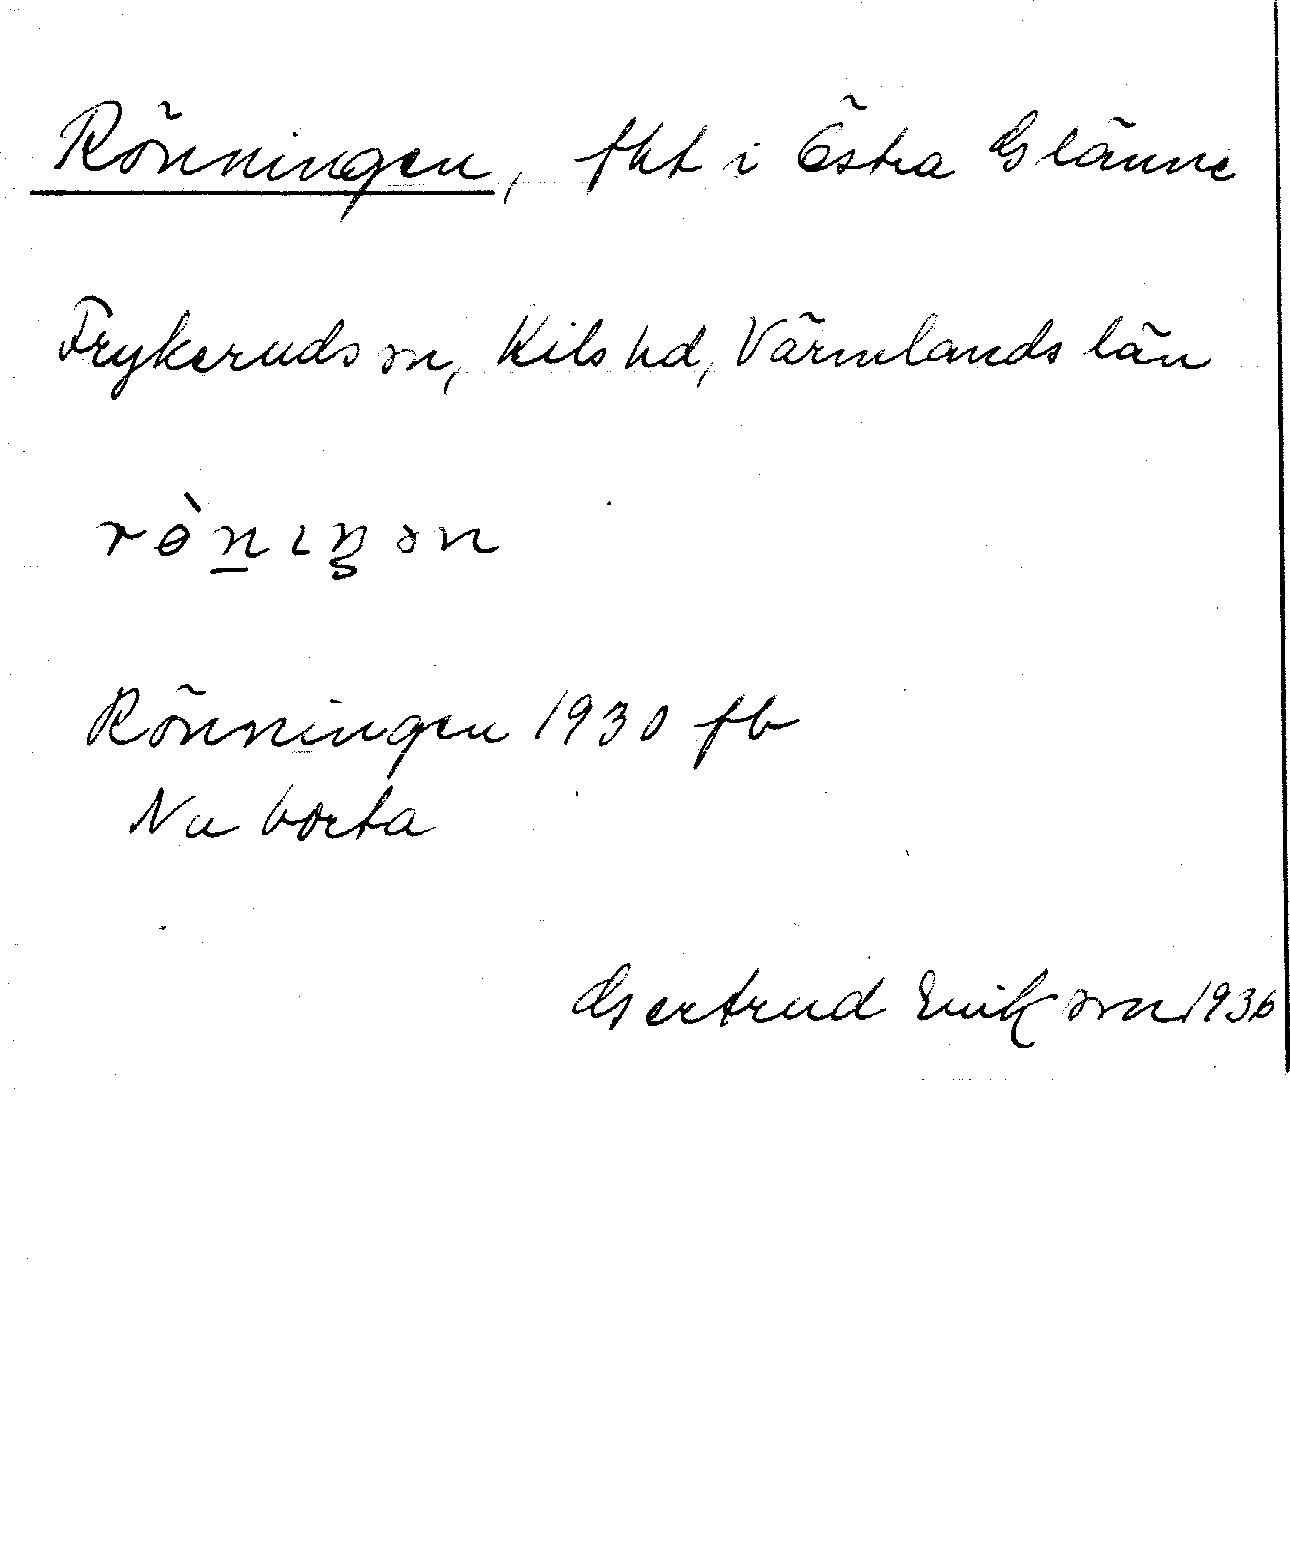 Rönningen, fht i Östra Glänne
Frykeruds sn, Kils hd, Värmlands län
rө̀n̲ıŋən
Rönningen 1930 fb
Nu borta
Gertrud Erikson 1936